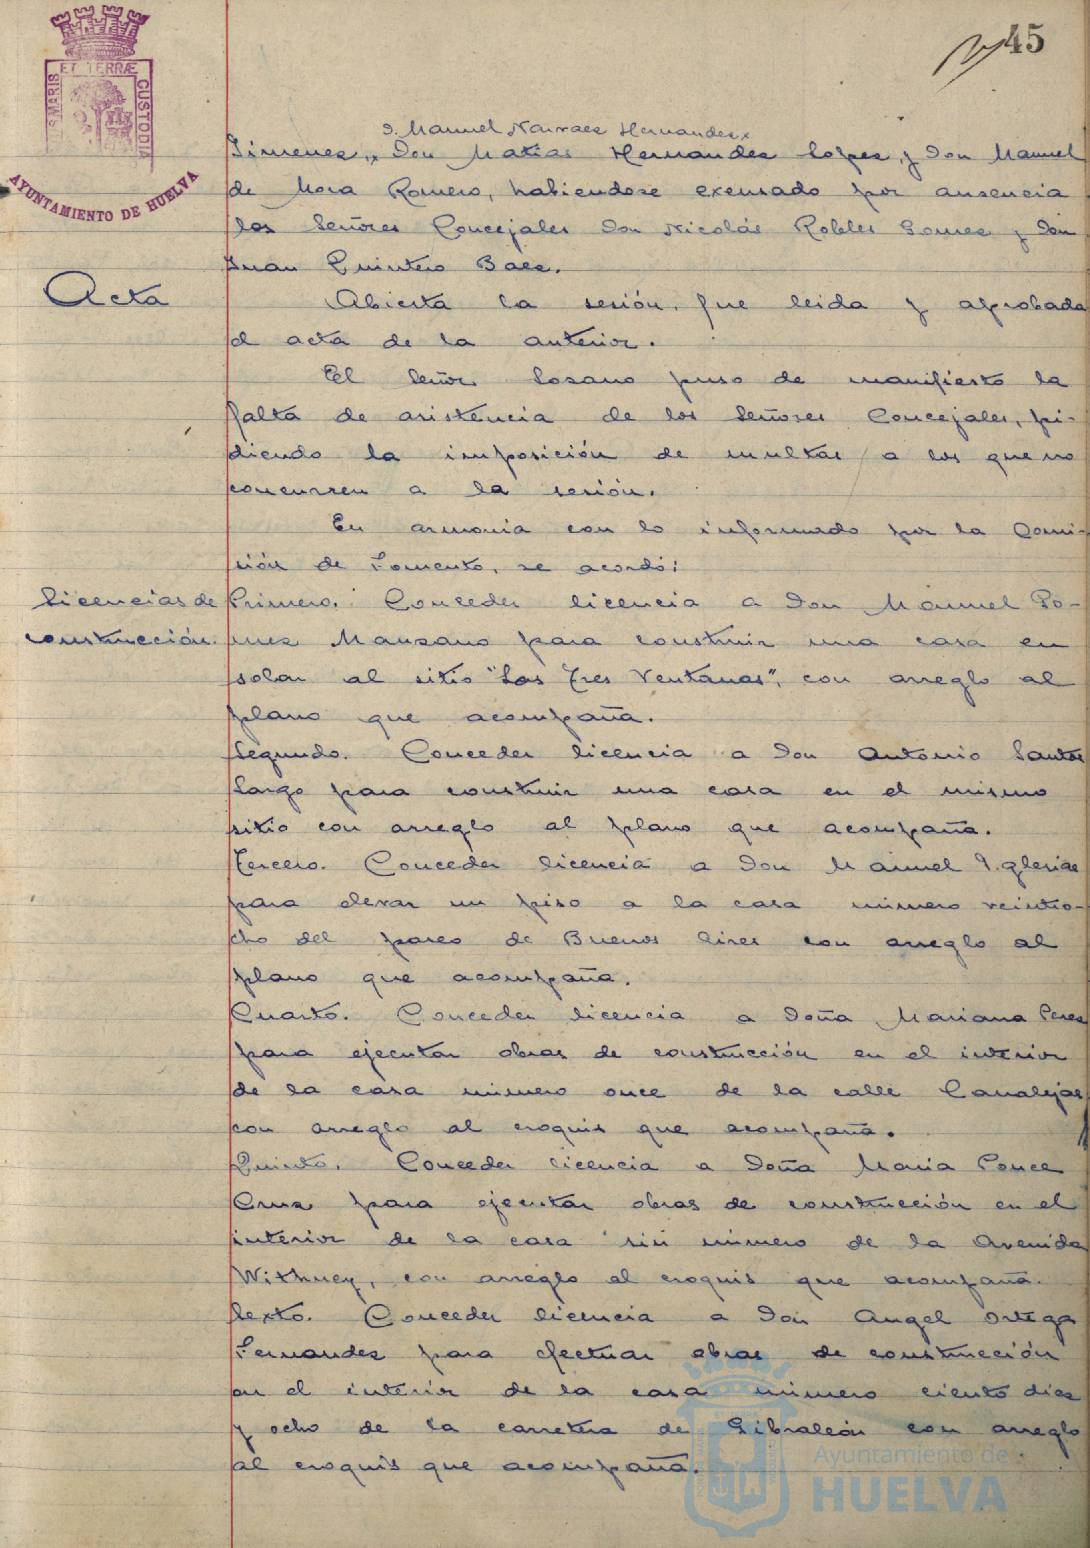 45
PORTUS MARIS ET TERRÆ CUSTODIA
AYUNTAMIENTO DE HUELVA
D. Manuel Narvaez Hernandez,
Jimenez, Don Matias Hernandez Lopez, y Don Manuel
de Mora Romero, habiendose excusado por ausencia
los Señores Concejales Don Nicolás Robles Gomez y Don
Juan Quintero Baez.
Acta
Abierta la sesión, fue leida y aprobada
el acta de la anterior.
El Señor Lozano puso de manifiesto la
falta de asistencia de los Señores Concejales, pi-
diendo la imposición de multas a los que no
concurren a la sesión.
En armonia con lo informado por la Comi-
sión de Fomento, se acordó:
Licencias de
construcción.
Primero. Conceder licencia a Don Manuel Po-
nce Manzano para construir una casa en
solar al sitio "Las Tres Ventanas", con arreglo al
plano que acompaña.
Segundo. Conceder licencia a Don Antonio Santos
Largo para construir una casa en el mismo
sitio con arreglo al plano que acompaña.
Tercero. Conceder licencia a Don Manuel Iglesias
para elevar un piso a la casa número veintio-
cho del paseo de Buenos Aires con arreglo al
plano que acompaña.
Cuarto. Conceder licencia a Doña Mariana Perez
para ejecutar obras de construcción en el interior
de la casa número once de la calle Canalejas
con arreglo al croquis que acompaña.
Quinto. Conceder licencia a Doña Maria Ponce
Cruz para ejecutar obras de construcción en el
interior de la casa sin número de la Avenida
Withney, con arreglo al croquis que acompaña.
Sexto. Conceder licencia a Don Angel Ortega
Fernandez para efectuar obras de construcción
en el interior de la casa número ciento diez
y ocho de la carretera de Gibraleón con arreglo
al croquis que acompaña.
Ayuntamiento de
HUELVA